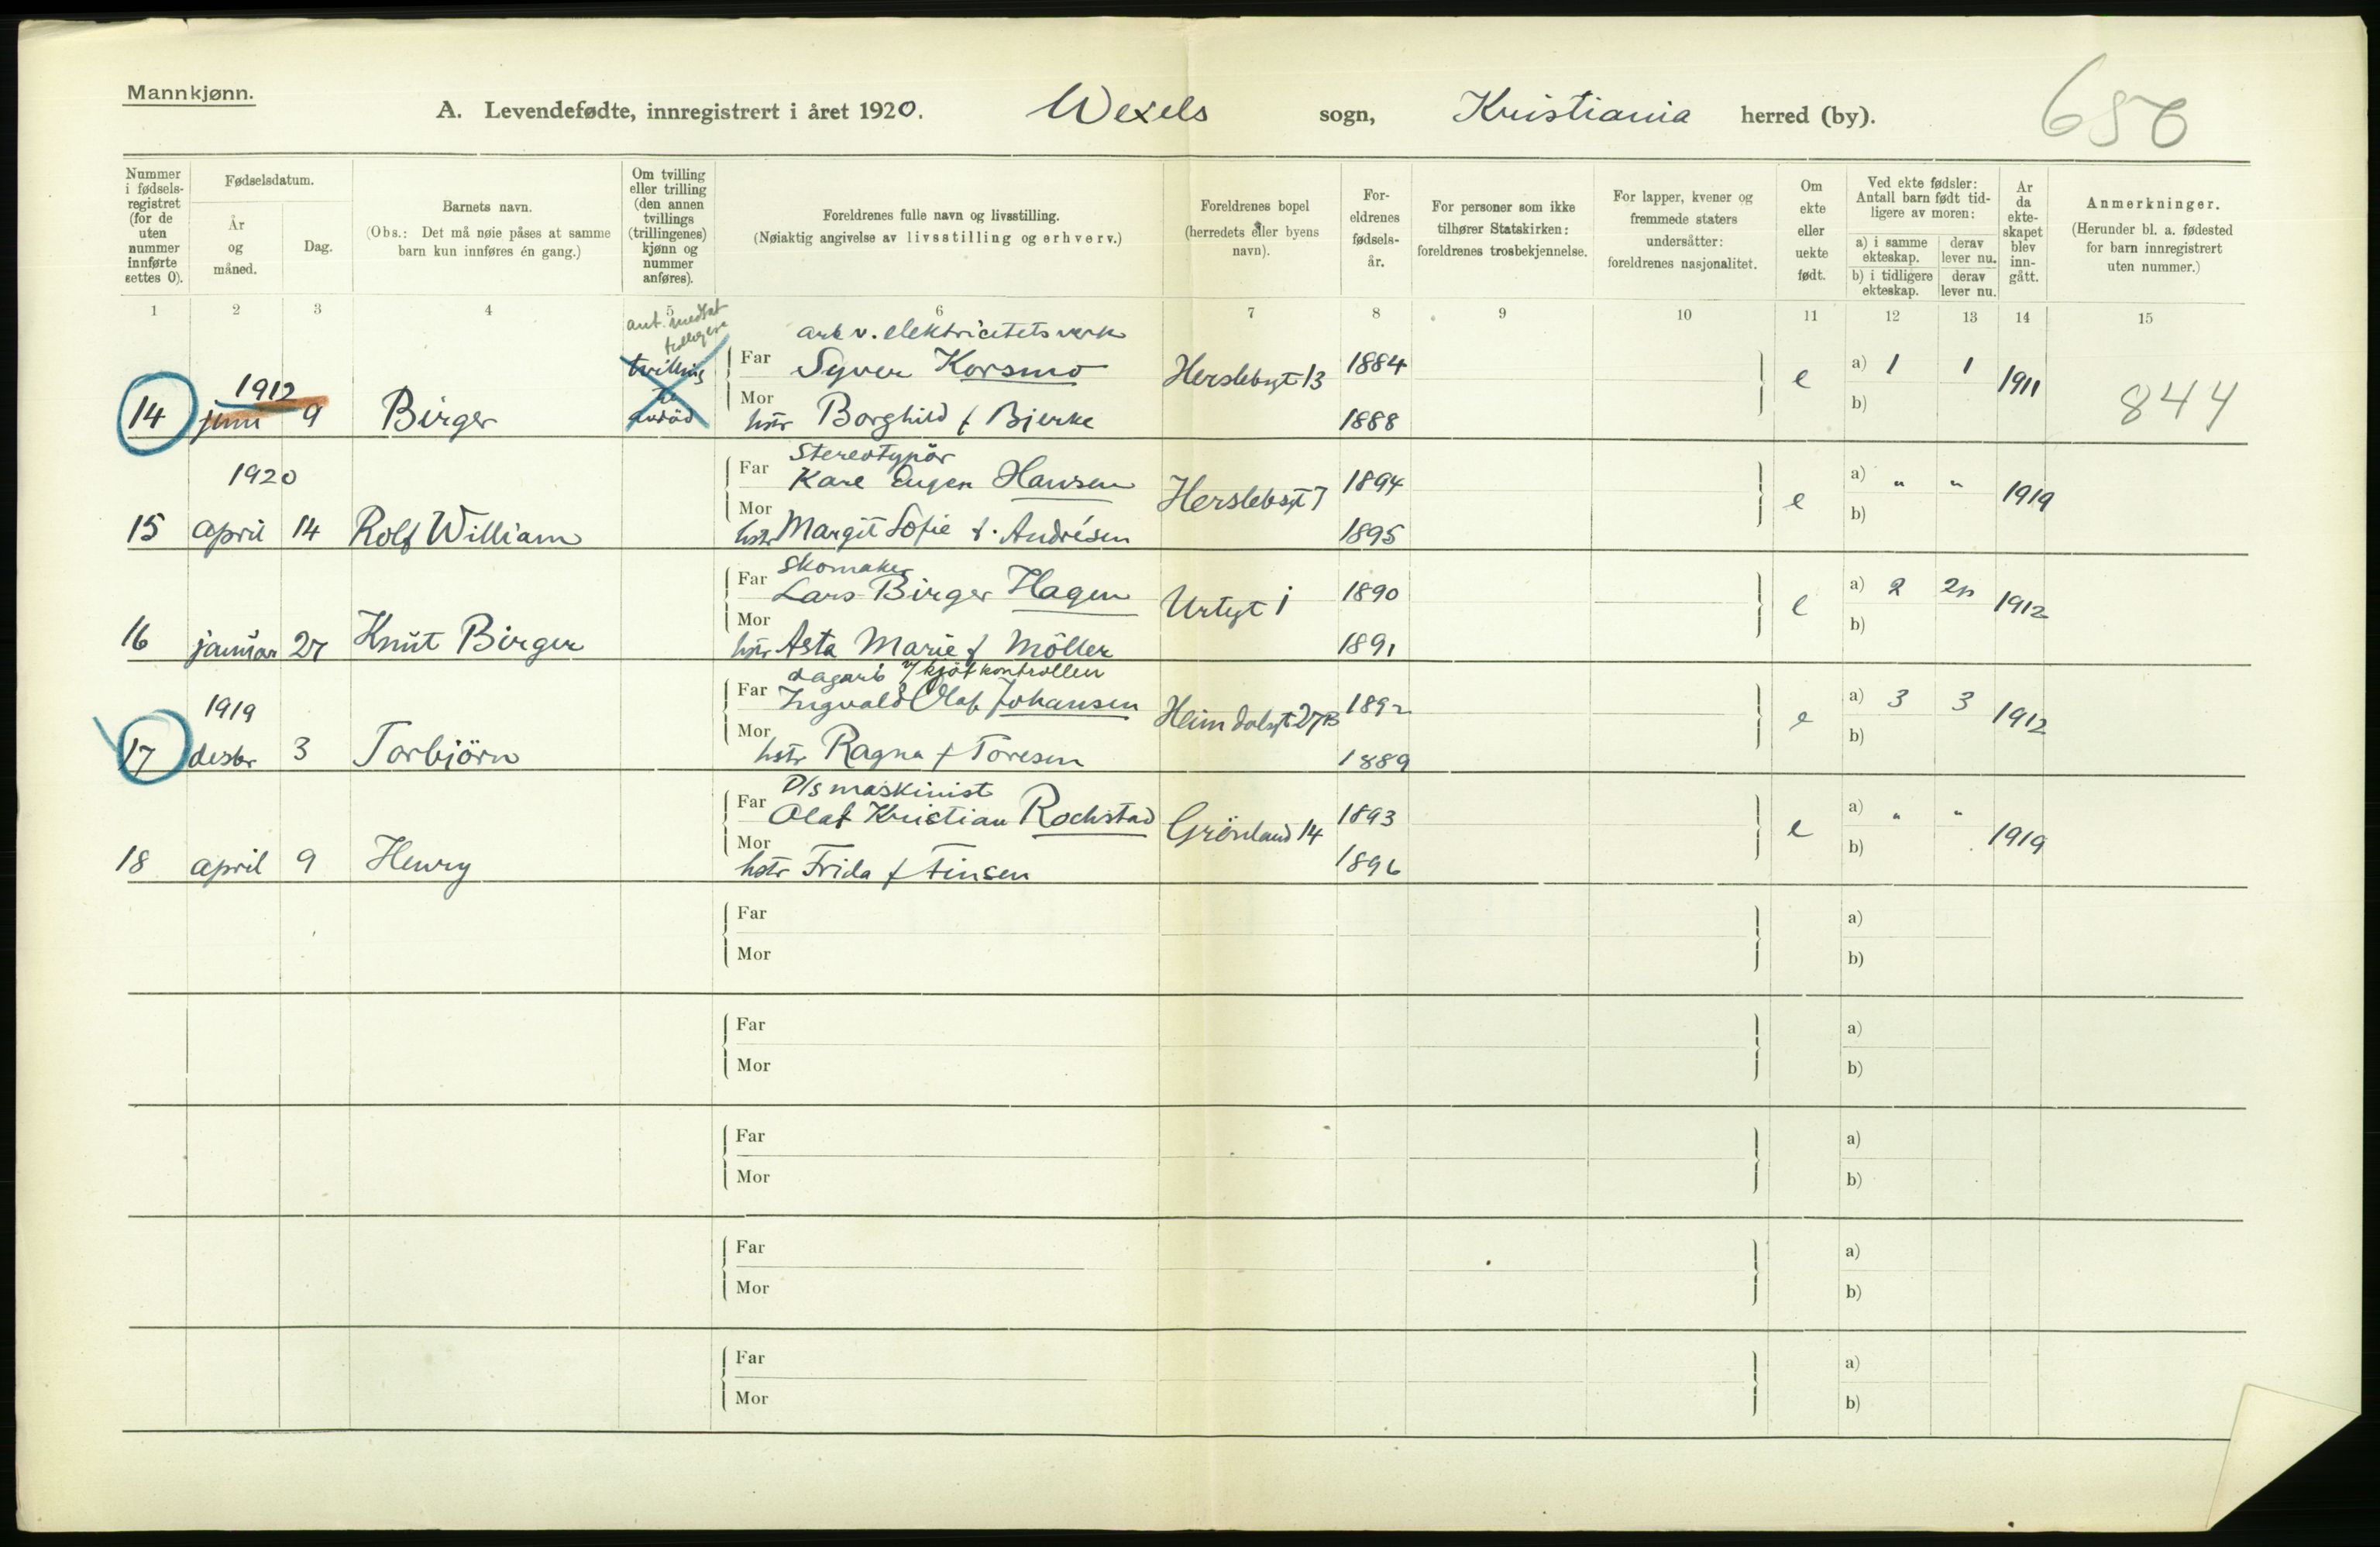 Mannkjønn.
A. Levendefødte, innregistrert i året 1920. Wexels sogn, Kristiania herred (by).
656
Nummer i fødselsregistret (for de uten nummer innførte settes 0).
Fødselsdatum.
År og måned.
Dag.
Barnets navn.
(Obs.: Det må nøie påses at samme barn kun innføres én gang.)
Om tvilling eller trilling (den annen tvillings (trillingenes) kjønn og nummer anføres).
Foreldrenes fulle navn og livsstilling.
(Nøiaktig angivelse av livsstilling og erhverv.)
Foreldrenes bopel (herredets eller byens navn).
Foreldrenes fødselsår.
For personer som ikke tilhører Statskirken: foreldrenes trosbekjennelse.
For lapper, kvener og fremmede staters undersåtter: foreldrenes nasjonalitet.
Om ekte eller uekte født.
Ved ekte fødsler: Antall barn født tidligere av moren:
a) i samme ekteskap. derav lever nu.
b) i tidligere ekteskap. derav lever nu.
År da ekteskapet blev inngått.
Anmerkninger.
(Herunder bl. a. fødested for barn innregistrert uten nummer.)
1 2 3 4 5 6 7 8 9 10 11 12 13 14 15
ant.
arb v. elektricitetsverk
tvilling
Far Syver Korsmo Herslebsgt 13 1884 e a) 1 1 1911
1912
14 juni 9 Birger
Mor hstr Borghild f Bjerke 1888 b)
844
Stereotypör
1920
Far Kare Eugen Hansen Herslebsgt 7 1894 e a) " " 1919
15 april 14 Rolf William
Mor hstr Margit Sofie f. Andrésen 1895 b)
Skomaker
Far Lars Birger Hagen Urtegt 1 1890 e a) 2 2 1912
16 januar 27 Knut Birger
Mor hstr Asta Marie f Möller 1891 b)
dagarb v/ kjötkontrollen
1919
Far Ingvald Olaf Johansen Heimdalsgt 27B 1892 e a) 3 3 1912
17 desbr 3 Torbjörn
Mor hstr Ragna f Toresen 1889 b)
D/s maskinist
Far Olaf Kristian Rochstad Grönland 14 1893 e a) " " 1919
18 april 9 Henry
Mor hstr Frida f Finsen 1896 b)
Far a)
Mor b)
Far a)
Mor b)
Far a)
Mor b)
Far a)
Mor b)
Far a)
Mor b)